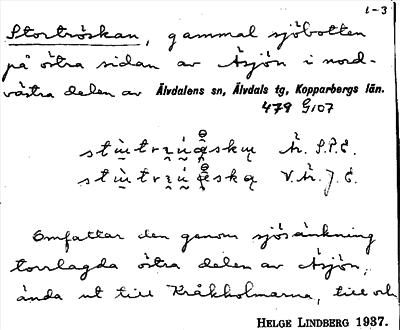 1-3
Stortröskan, gammal sjöbotten
på östra sidan av Åsjön i nord-
västra delen av Älvdalens sn, Älvdals tg, Kopparbergs län.
479 G107
Ä. S.P.E.
V.Ä. J.E.
Omfattar den genom sjösänkning
torrlagda östra delen av Åsjön,
ända ut till Kråkholmarna, till och
HELGE LINDBERG 1937.